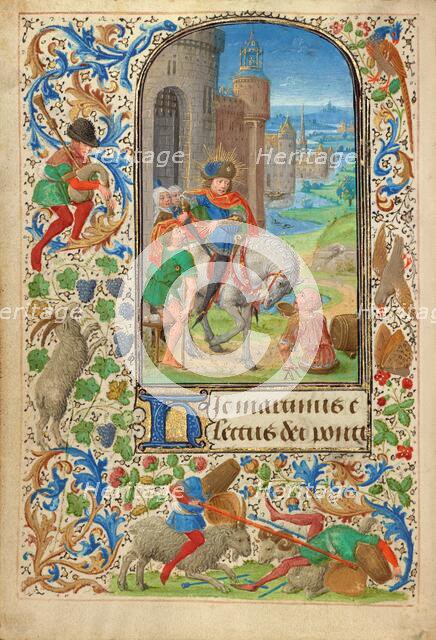 Heritage Heritage
Heritage Heritage
Hic martinus e
lectus dei ponti
Heritage Heritage